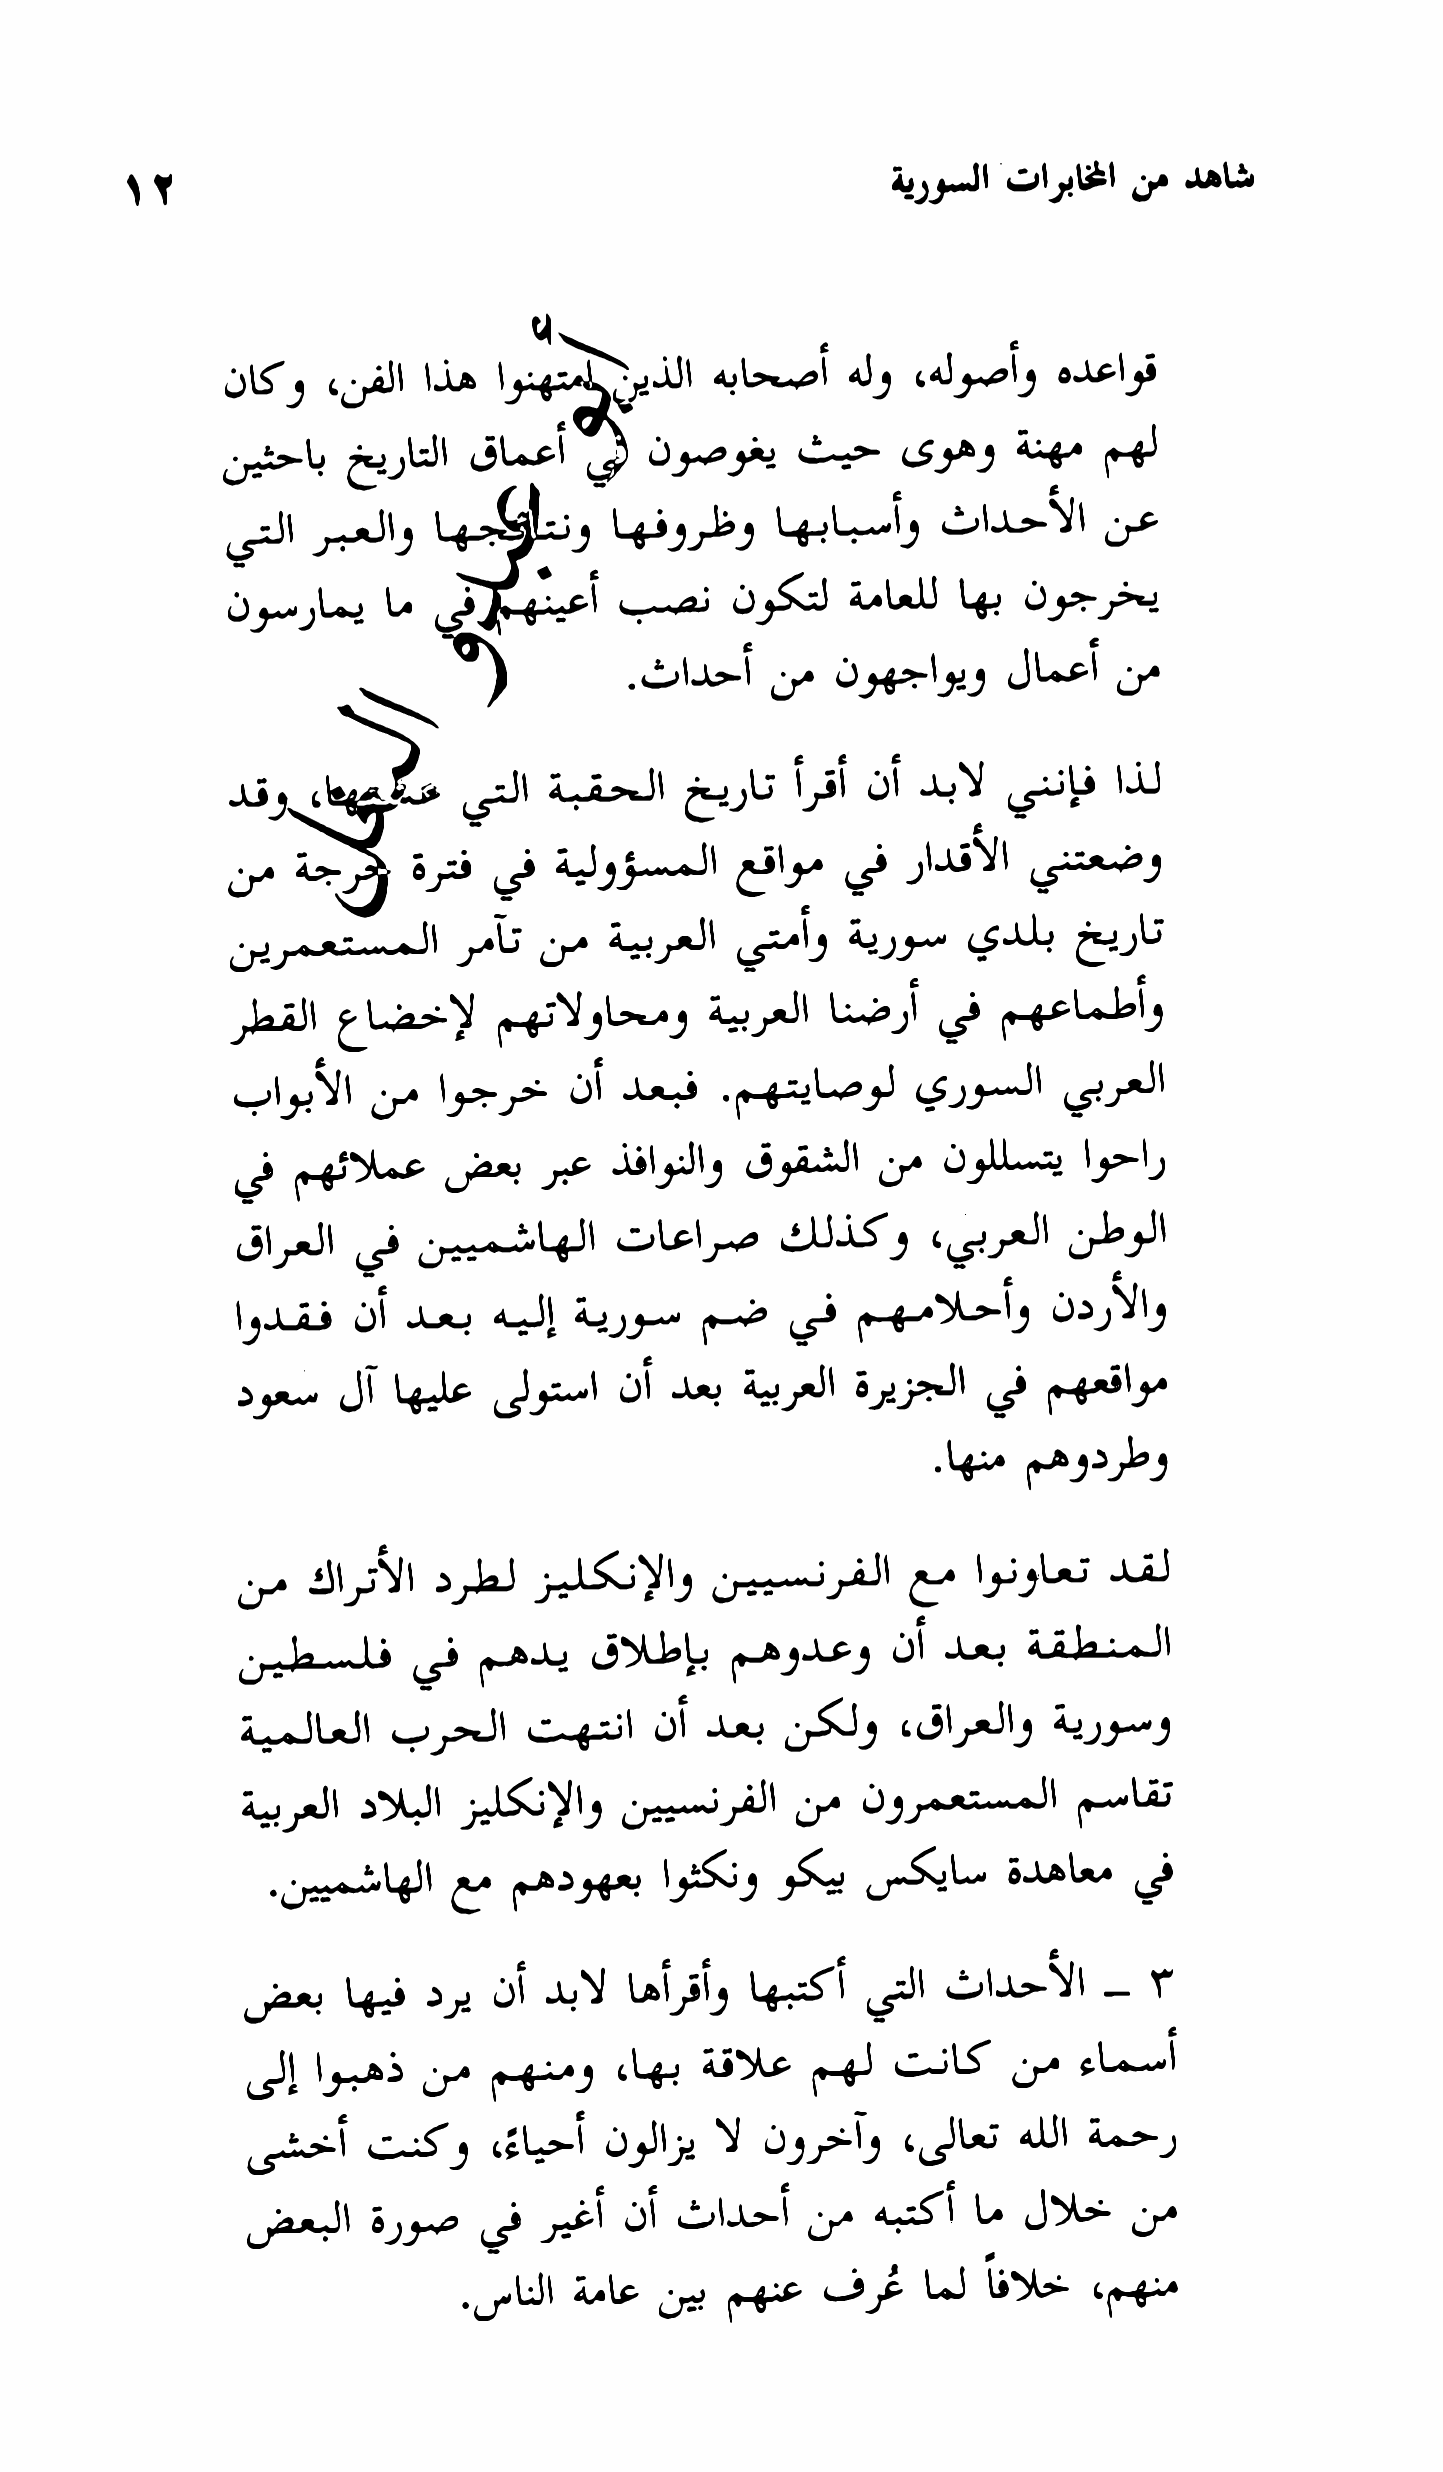 شاهد من المخابرات السورية
١٢
قواعده وأصوله، وله أصحابه الذين امتهنوا هذا الفن، وكان
لهم مهنة وهوى حيث يغوصون في أعماق التاريخ باحثين
عن الأحداث وأسبابها وظروفها ونتائجها والعبر التي
يخرجون بها للعامة لتكون نصب أعينهم في ما يمارسون
من أعمال ويواجهون من أحداث.
لذا فإنني لابد أن أقرأ تاريخ الحقبة التي عشتها، وقد
وضعتني الأقدار في مواقع المسؤولية في فترة حرجة من
تاريخ بلدي سورية وأمتي العربية من تآمر المستعمرين
وأطماعهم في أرضنا العربية ومحاولاتهم لإخضاع القطر
العربي السوري لوصايتهم. فبعد أن خرجوا من الأبواب
راحوا يتسللون من الشقوق والنوافذ عبر بعض عملائهم في
الوطن العربي، وكذلك صراعات الهاشميين في العراق
والأردن وأحلامهم في ضم سورية إليه بعد أن فقدوا
مواقعهم في الجزيرة العربية بعد أن استولى عليها آل سعود
وطردوهم منها.
لقد تعاونوا مع الفرنسيين والإنكليز لطرد الأتراك من
المنطقة بعد أن وعدوهم بإطلاق يدهم في فلسطين
وسورية والعراق، ولكن بعد أن انتهت الحرب العالمية
تقاسم المستعمرون من الفرنسيين والإنكليز البلاد العربية
في معاهدة سايكس بيكو ونكثوا بعهودهم مع الهاشميين.
٣ - الأحداث التي أكتبها وأقرأها لابد أن يرد فيها بعض
أسماء من كانت لهم علاقة بها، ومنهم من ذهبوا إلى
رحمة الله تعالى، وآخرون لا يزالون أحياءً، وكنت أخشى
من خلال ما أكتبه من أحداث أن أغير في صورة البعض
منهم، خلافاً لما عُرف عنهم بين عامة الناس.